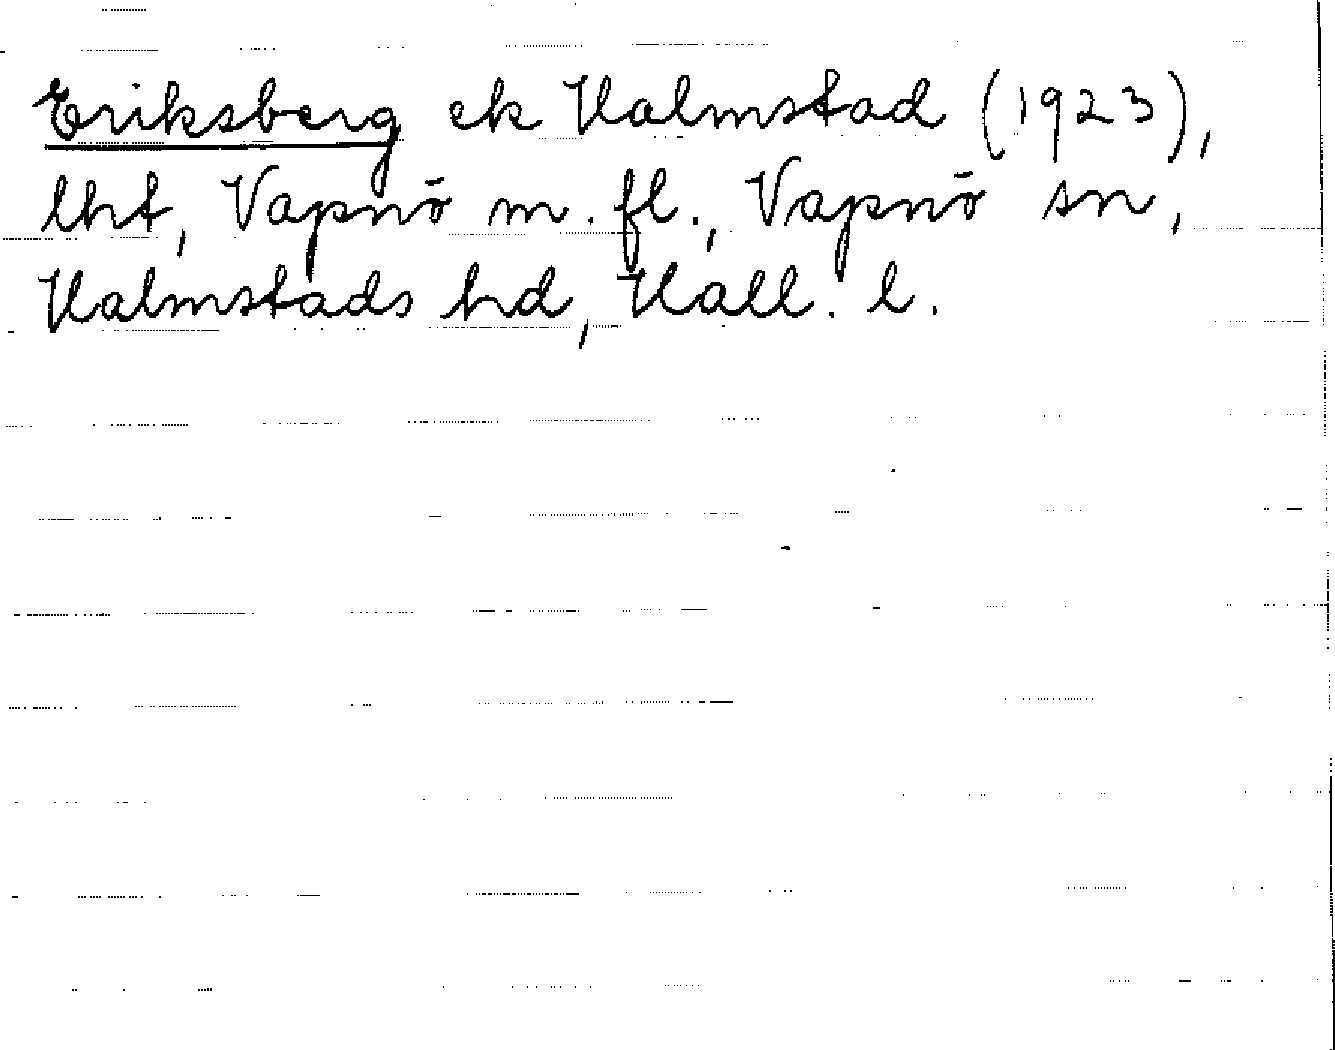 Eriksberg ek Halmstad (1923),
lht, Vapnö m. fl., Vapnö sn,
Halmstads hd, Hall. l.